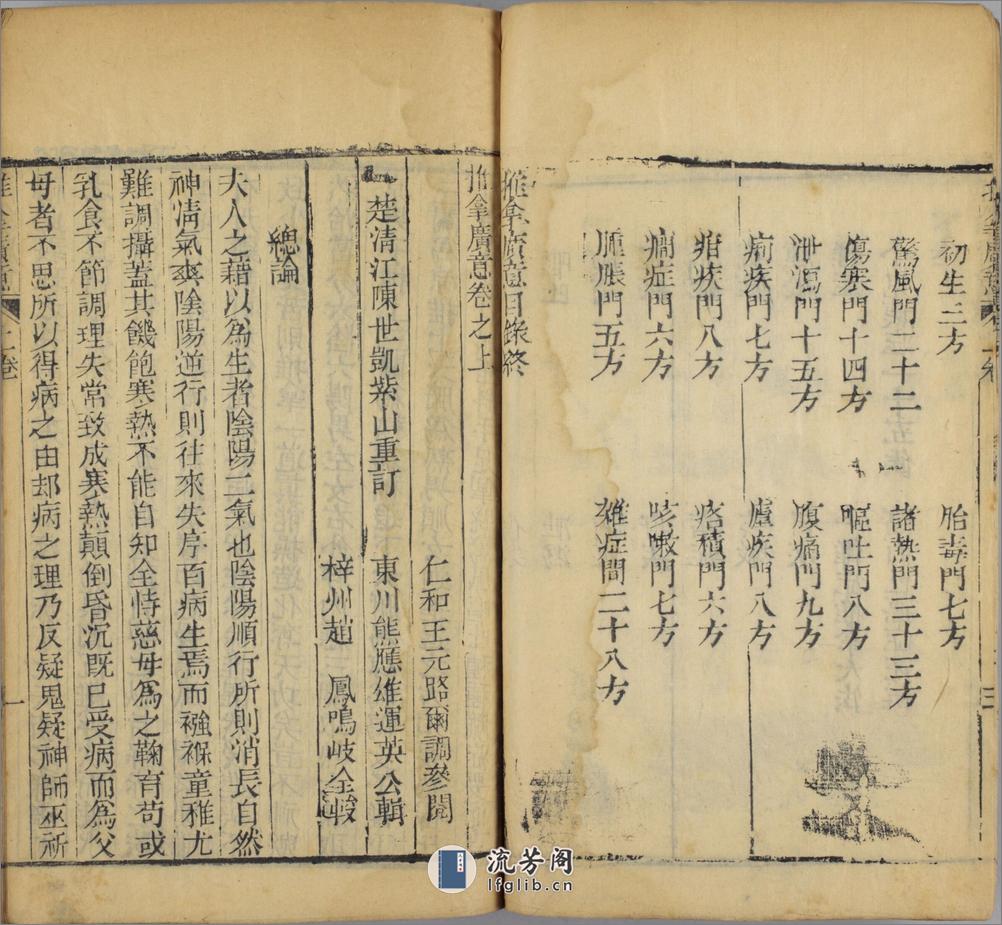 初生三方
胎毒門七方
驚風門二十二方
諸熱門三十三方
傷寒門十四方
嘔吐門八方
泄瀉門十五方
腹痛門九方
痢疾門七方
瘧疾門八方
疳疾門八方
痞積門六方
癇症門六方
咳嗽門七方
腫脹門五方
雜症門二十八方
推拿廣意目錄終
推拿廣意卷之上
仁和王元路爾調參閱
楚清江陳世凱紫山重訂
東川熊應雄運英公輯
梓州趙 鳳鳴岐仝較
總論
夫人之藉以為生者陰陽二氣也陰陽順行所則消長自然
神清氣爽陰陽逆行則往來失序百病生焉而襁褓童稚尤
難調攝蓋其饑飽寒熱不能自知全恃慈母為之鞠育苟或
乳食不節調理失常致成寒熱顛倒昏沉既已受病而為父
母者不思所以得病之由却病之理乃反疑鬼疑神師巫祈
推拿廣意 上卷 一
流芳阁
lfglib.cn